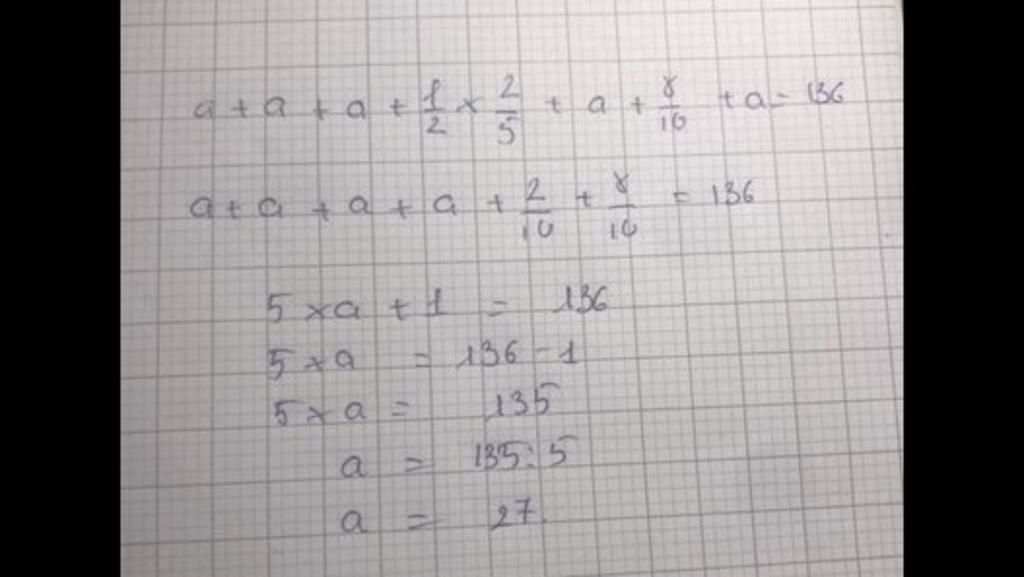 a + a + a + 1/2 × 2/5 + a + 8/10 + a = 136
a + a + a + a + 2/10 + 8/10 = 136
5 × a + 1 = 136
5 × a = 136 - 1
5 × a = 135
a = 135 : 5
a = 27